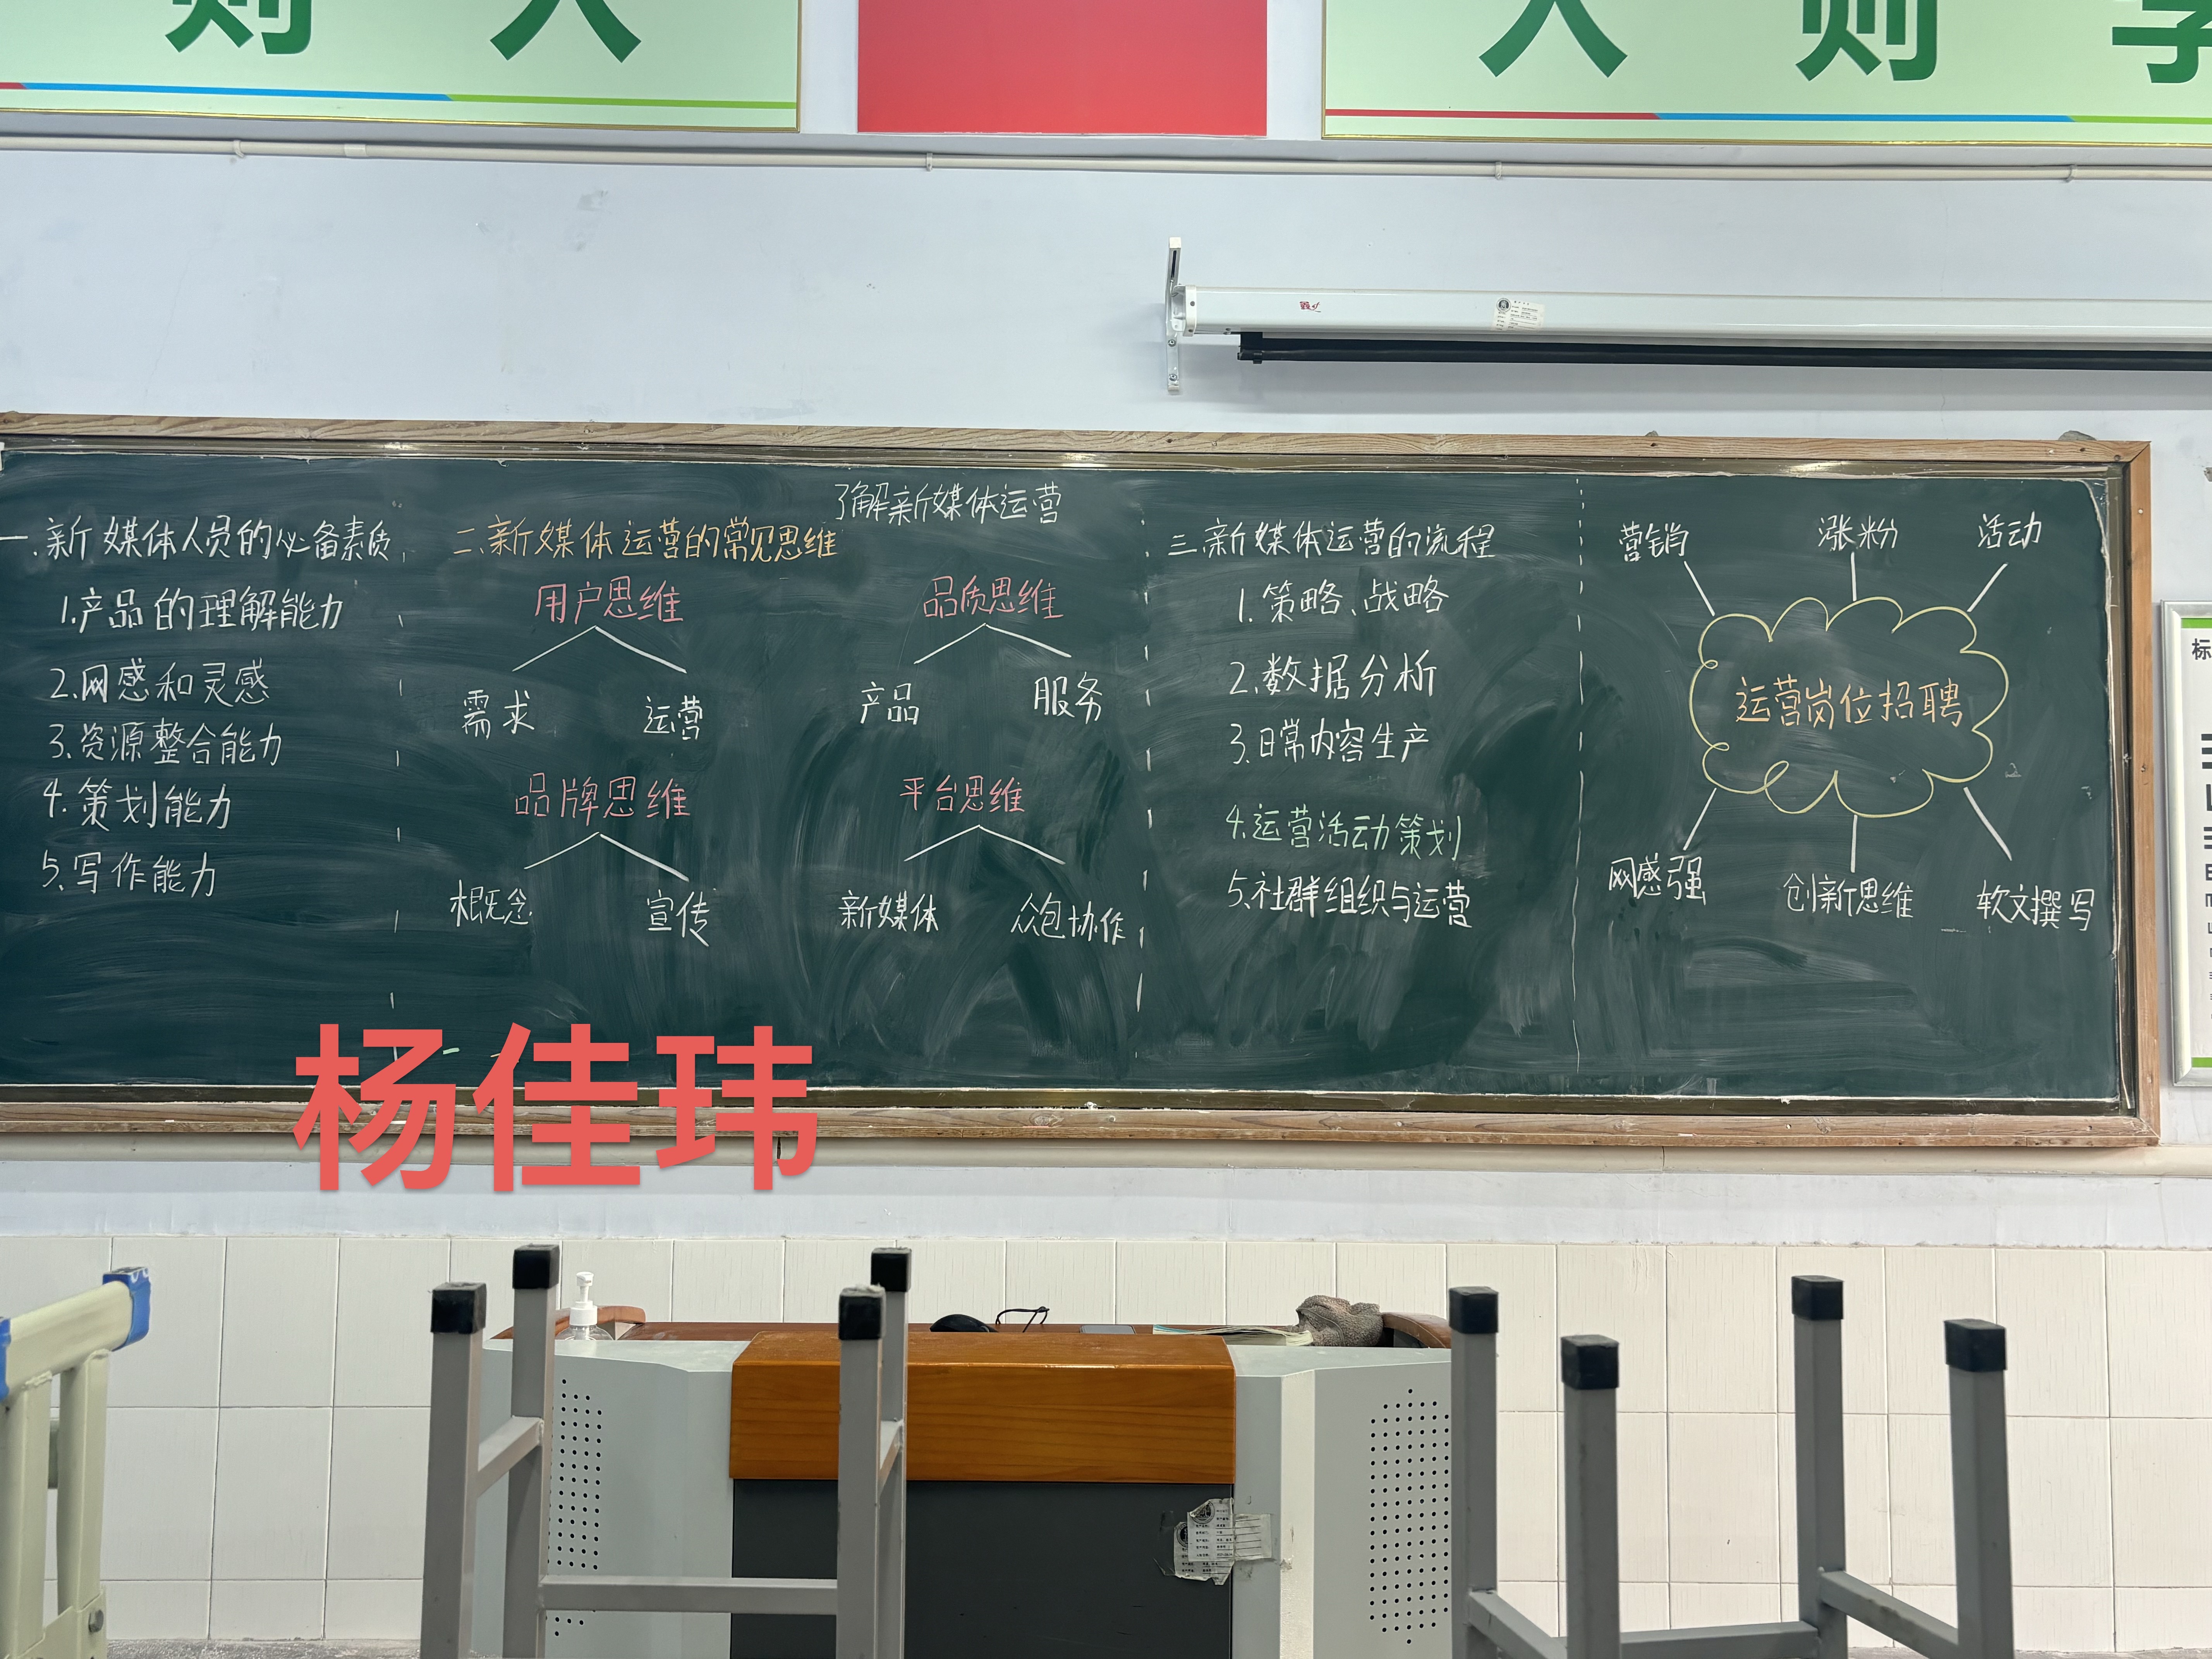 则 人
人 则 学
了解新媒体运营
一、新媒体人员的必备素质
1.产品的理解能力
2.网感和灵感
3.资源整合能力
4.策划能力
5.写作能力
二、新媒体运营的常见思维
用户思维
需求 运营
品质思维
产品 服务
品牌思维
概念 宣传
平台思维
新媒体 众包协作
三、新媒体运营的流程
1.策略、战略
2.数据分析
3.日常内容生产
4.运营活动策划
5.社群组织与运营
营销 涨粉 活动
运营岗位招聘
网感强 创新思维 软文撰写
标
杨佳玮